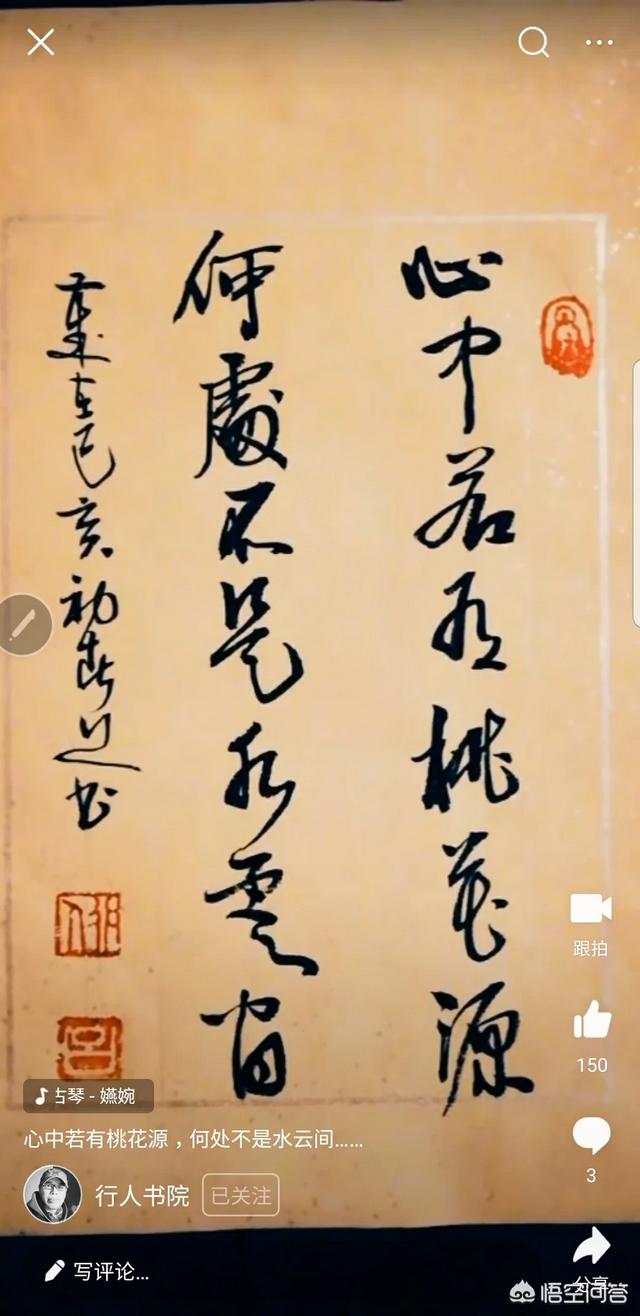 心中若有桃花源
何處不是水雲間
歲在己亥初春
书
跟拍
150
古琴 - 嬿婉
心中若有桃花源，何处不是水云间……
3
行人书院
已关注
写评论...
分享
悟空问答